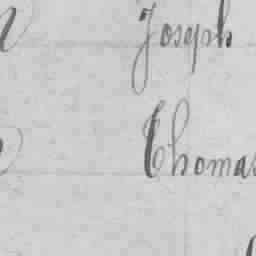 Joseph
Thomas